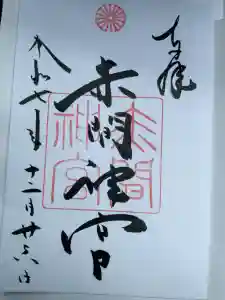 奉拝
赤間神宮
令和七年十二月廿六日
赤間神宮